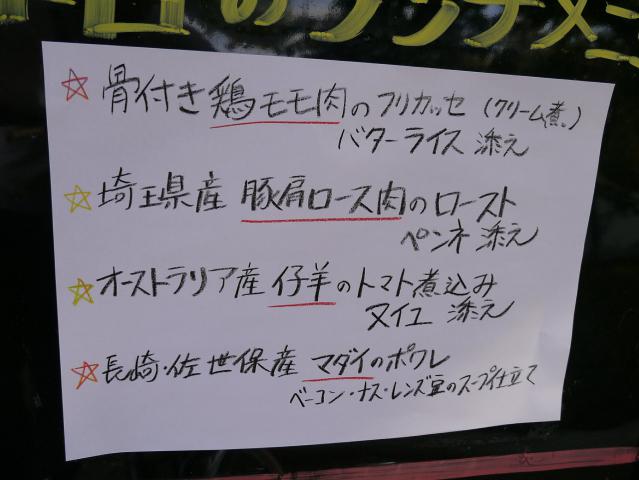 日のランチメニ
☆骨付き鶏モモ肉のフリカッセ（クリーム煮。）
バターライス 添え
☆埼玉県産 豚肩ロース肉のロースト
ペンネ添え
☆オーストラリア産 仔羊のトマト煮込み
ヌイユ 添え
☆長崎・佐世保産 マダイのポワレ
ベーコン・ナス・レンズ豆のスープ仕立て